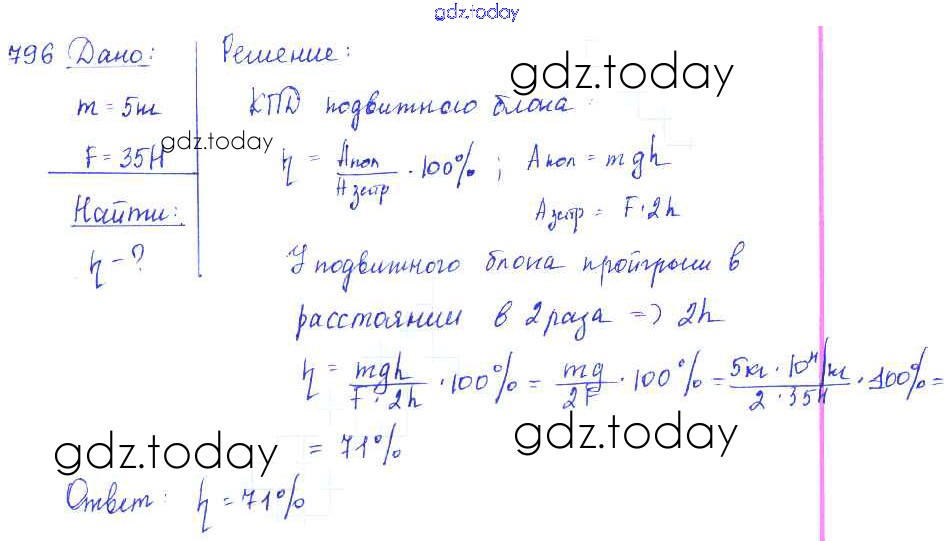 gdz.today
796 Дано:
m = 5кг
F = 35Н
Найти:
η - ?
Решение:
gdz.today
КПД подвижного блока:
gdz.today
η = Aпол / Aзатр · 100% ; Aпол = mgh
Aзатр = F · 2h
У подвижного блока проигрыш в
расстоянии в 2 раза => 2h
η = mgh / F · 2h · 100% = mg / 2F · 100% = 5кг · 10 Н/кг / 2 · 35Н · 100% =
gdz.today
= 71%
gdz.today
Ответ: η = 71%